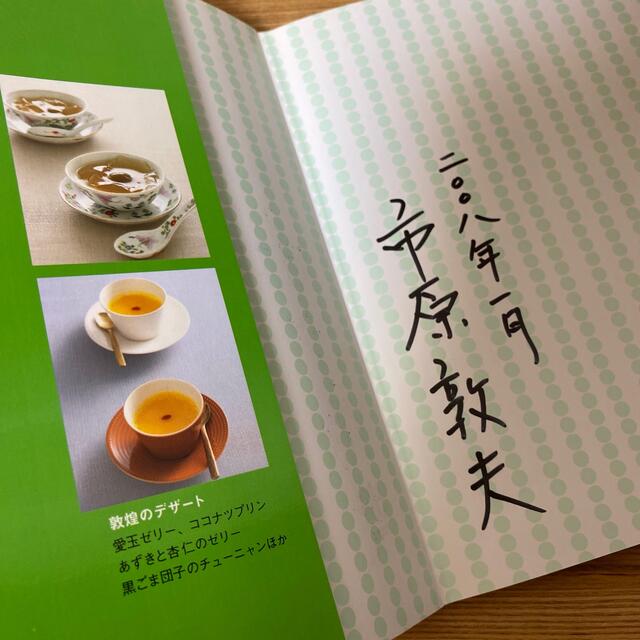 二〇〇八年一月
市原敦夫
敦煌のデザート
愛玉ゼリー、ココナツプリン
あずきと杏仁のゼリー
黒ごま団子のチューニャンほか